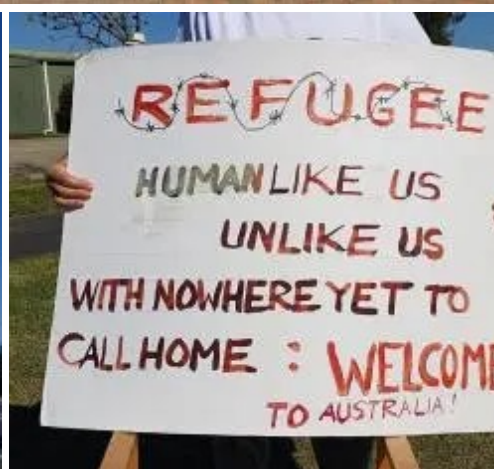 REFUGEE
HUMAN LIKE US
UNLIKE US
WITH NOWHERE YET TO
CALL HOME : WELCOME
TO AUSTRALIA!